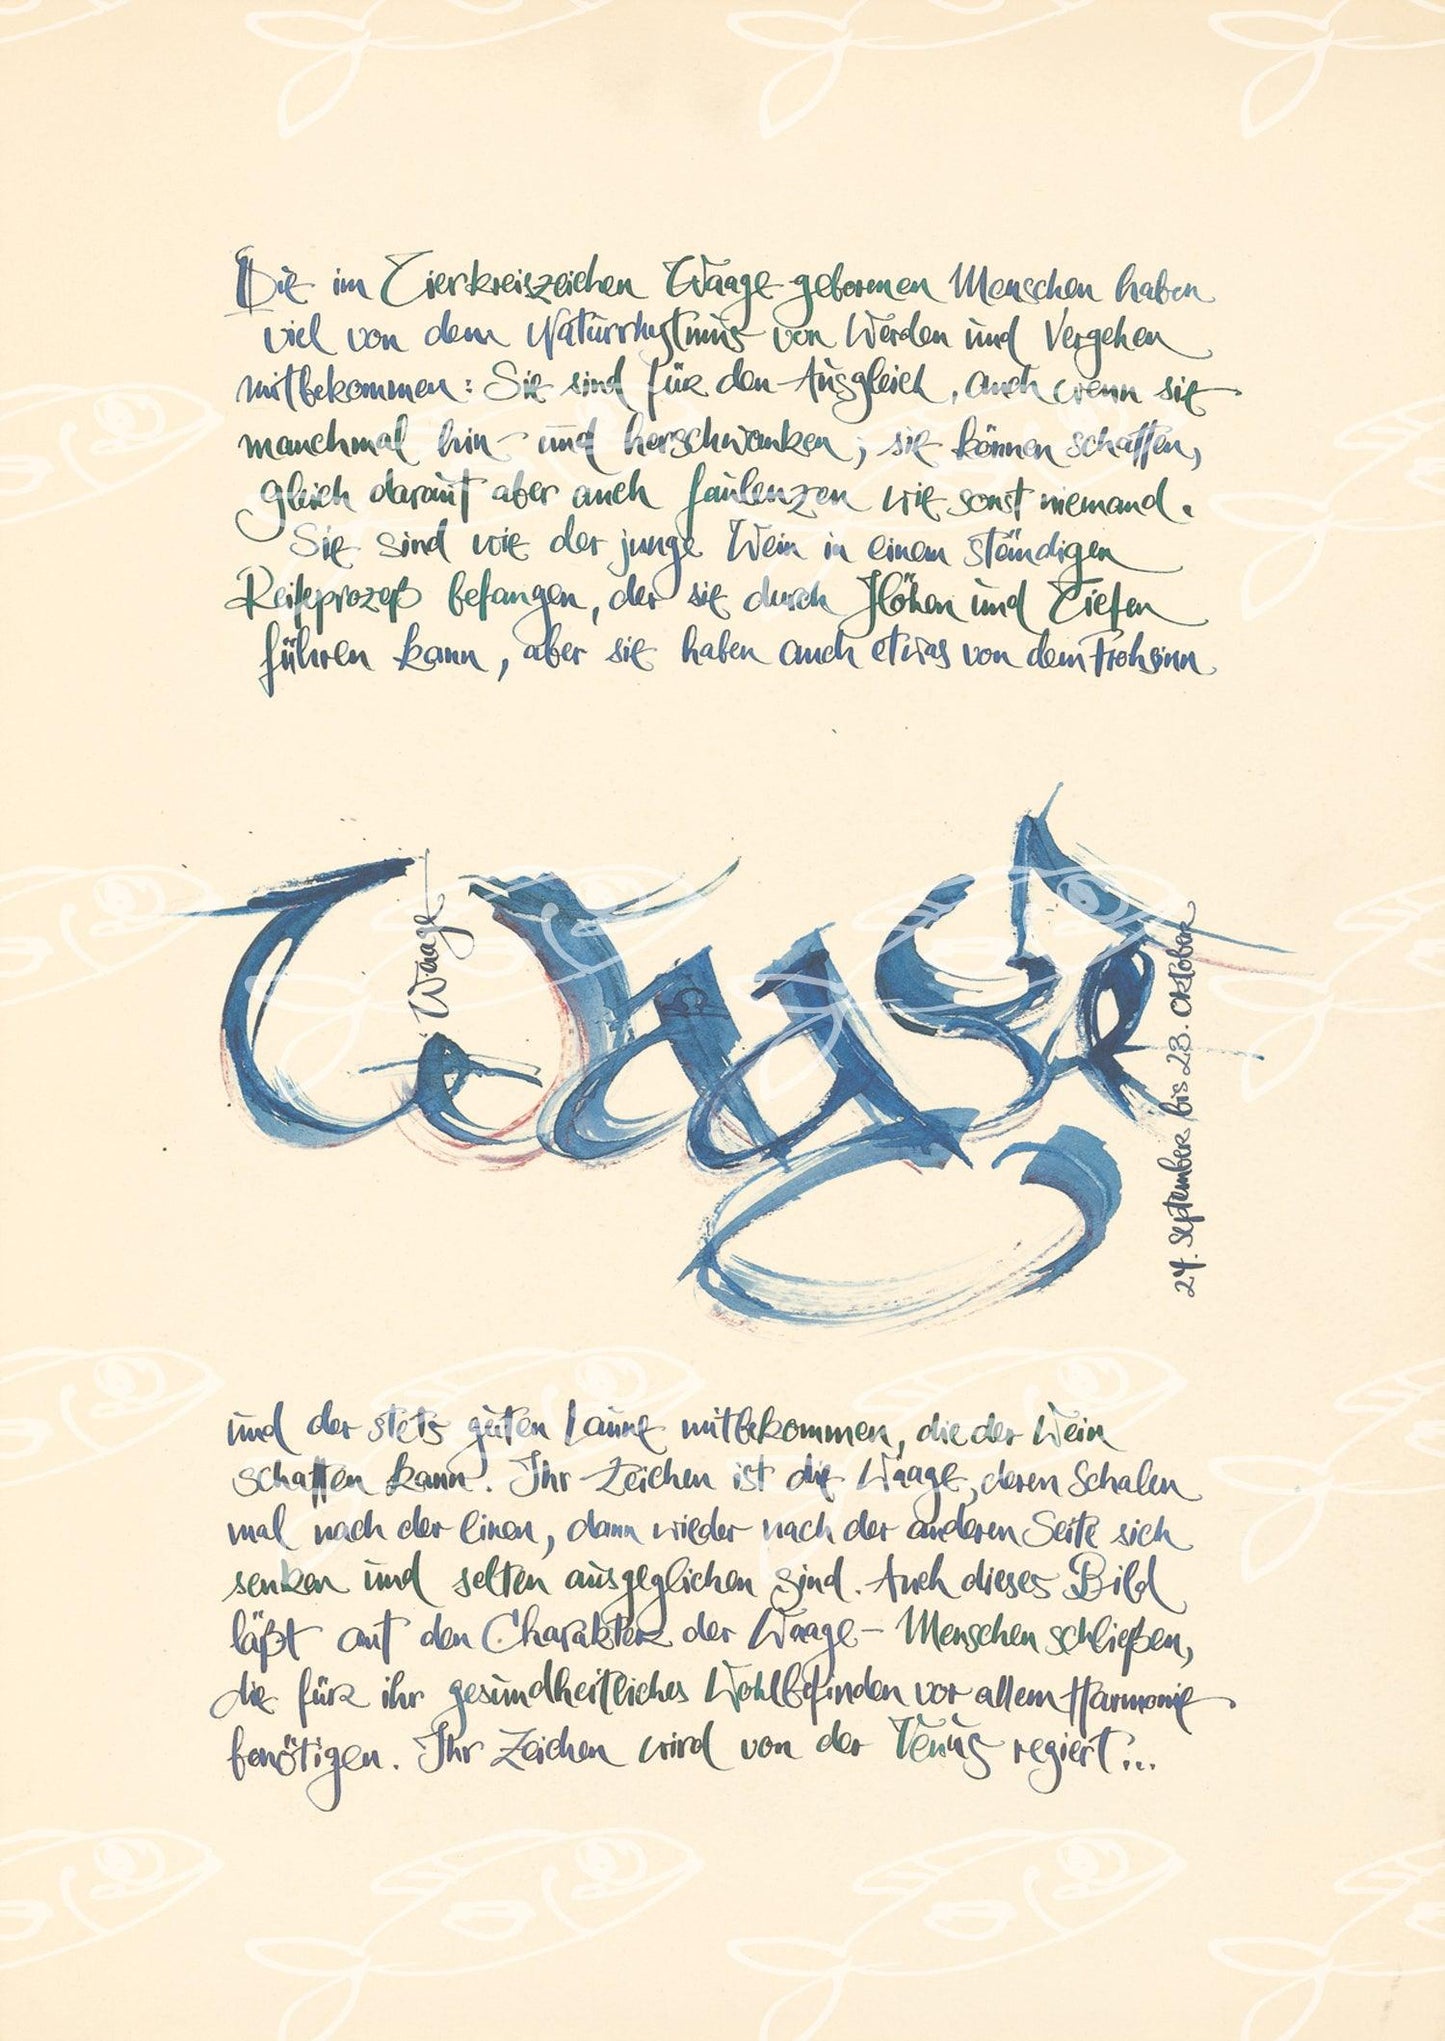 Die im Tierkreiszeichen Waage geborenen Menschen haben
viel von dem Naturrhytmus von Werden und Vergehen
mitbekommen: Sie sind für den Ausgleich, auch wenn sie
manchmal hin- und herschwanken; sie können schaffen,
gleich darauf aber auch faulenzen wie sonst niemand.
Sie sind wie der junge Wein in einem ständigen
Reifeprozeß befangen, der sie durch Höhen und Tiefen
führen kann, aber sie haben auch etwas von dem Frohsinn
Waage
Waage
24. September bis 23. Oktober
und der stets guten Laune mitbekommen, die der Wein
schaffen kann. Ihr Zeichen ist die Waage, deren Schalen
mal nach der einen, dann wieder nach der anderen Seite sich
senken und selten ausgeglichen sind. Auch dieses Bild
läßt auf den Charakter der Waage-Menschen schließen,
die für ihr gesundheitliches Wohlbefinden vor allem Harmonie
benötigen. Ihr Zeichen wird von der Venus regiert...